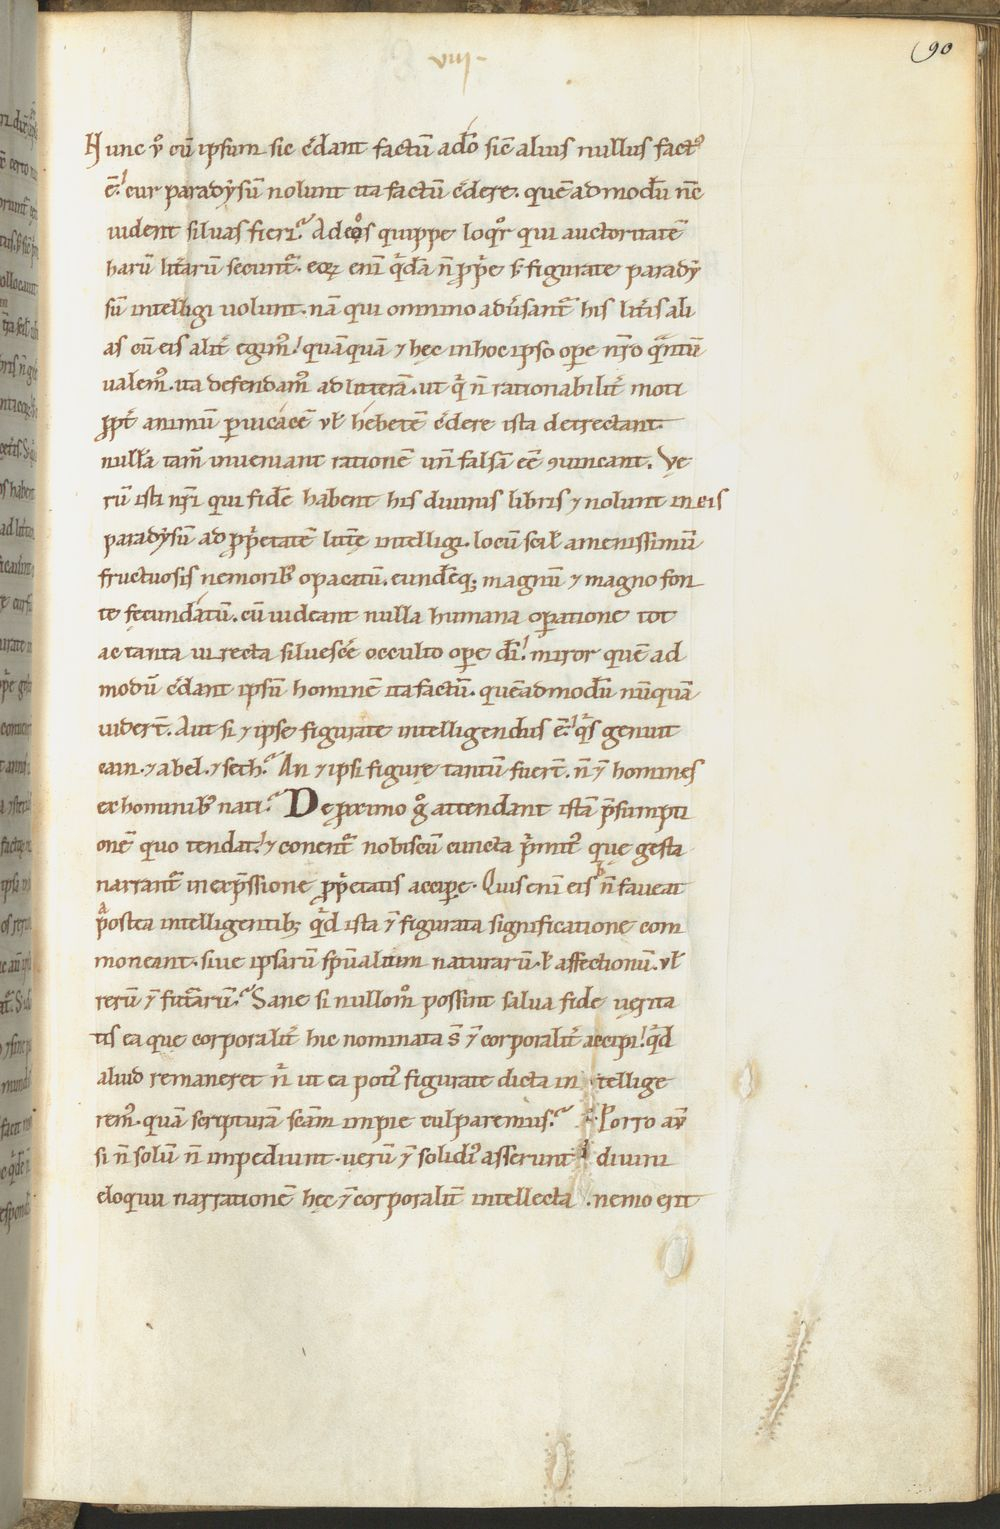 viii·
90
Hunc ů cū ipsum sic c̄dant factū a dō sic̄ alius nullus fact᷒
ē. cur paradẏsū nolunt ita factū c̄dere. quēadmodū nc̄
uident siluas fieri? Ad eos quippe loqͦr qui auctoritatē
harū litt̄arū secunt᷑. eoꝝ eni q̄dā n̄ ꝓp̄e sꝫ figurate paradẏ
sū intelligi uolunt. nā qui omnino adūsant᷑ his litt̄is ali
as cū eis alit̄ egim᷒. quāquā ⁊ hęc in hoc ipso oꝑe nr̄o qᷓntū
ualem᷒. ita defendam᷒ ad litterā. ut q̄ n̄ rationabilit̄ moti
ꝓpt̄ animū ꝑuicacē uł hebetē c̄dere ista detrectant.
nullā tam̄ inueniant rationē un̄ falsa eē ꝯuincant. Ve
rū isti nr̄i qui fidē habent his diuinis libris ⁊ nolunt in eis
paradẏsū ad ꝓp̄etatē litt̄ę intelligi. locū scił amenissimū
fructuosis nemorib᷒ opacatū. eundēq; magnū ⁊ magno fon
te fecundatū. cū uideant nulla humana oꝑatione tot
ac tanta uirecta siluescē occulto oꝑe dī. miror quē ad
modū c̄dant ipsū hominē ita factū. quēadmodū nūquā
uider̄t. Aut si ⁊ ipse figurate intelligendus ē. qis genuit
cain. ⁊ abel. ⁊ seth? An ⁊ ipsi figurę tantū fuer̄t. n̄ ⁊̄ homines
ex hominib᷒ nati? De ꝓximo gͦ attendant istā p̄sumpti
onē quo tendat. ⁊ conent᷑ nobiscū cuncta p̄mit᷒ quę gesta
narrant᷑ in exp̄ssione ꝓp̄etatis acciꝑe. Quis eni eis n̄ faueat
postea intelligentib; q̄d ista ⁊̄ figurata significatione com
moneant. siue ipsarū sp̄ualium naturarū. ł affectionū. uł
rerū ⁊̄ futarū? Sane si nullom᷒ possint salua fide uerita
tis ea que corporalit̄ hic nominata s̄ ⁊̄ corporalit̄ accipi. q̄d
aliud remaneret n̄ ut ea poti᷒ figurate dicta in tellige
rem᷒. quā scripturā scām impie culparemus? Porro au̅
si n̄ solū n̄ impediunt. uerū ⁊̄ solidi᷒ asserunt diuini
eloquii narrationē hęc ⁊̄ corporalit̄ intellecta. nemo erit